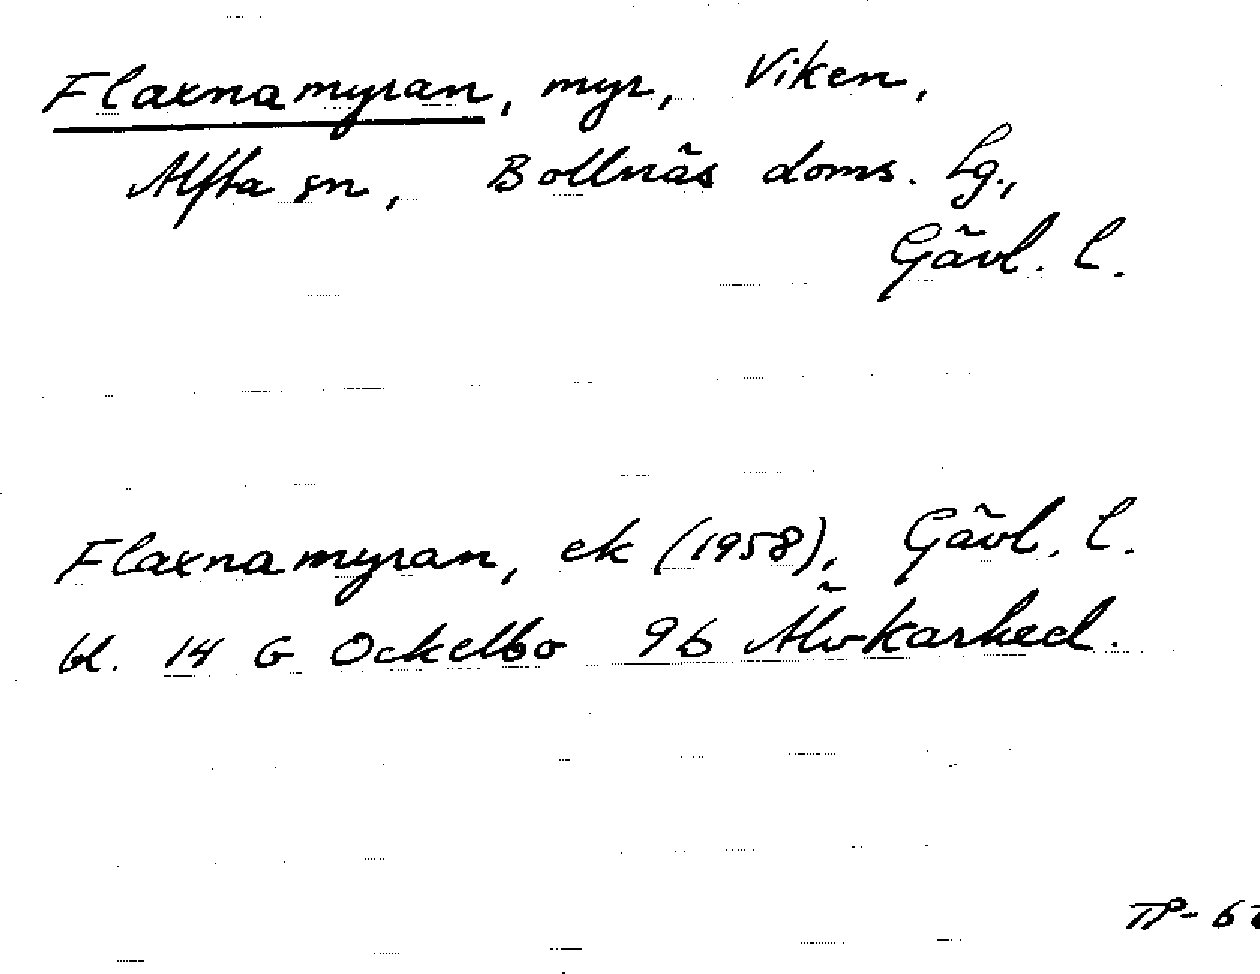 Flaxnamyran, myr, Viken,
Alfta sn, Bollnäs doms. Lg.,
Gävl. l.
Flaxnamyran, ek (1958), Gävl. l.
bl. 14 G Ockelbo 9b Älvkarhed.
TP-6